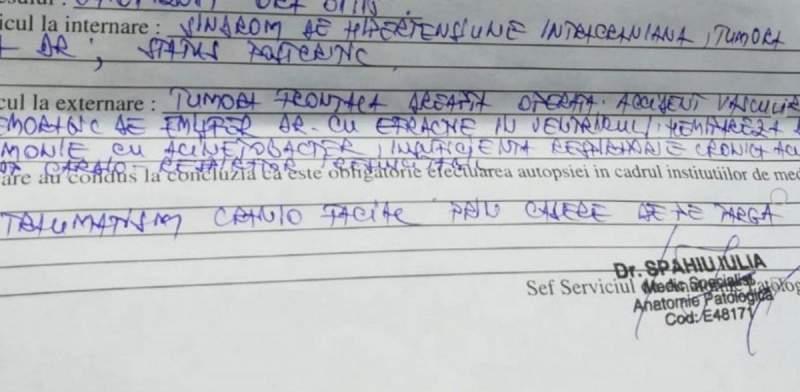 icul la internare : SINDROM DE HIPERTENSIUNE INTRACRANIANA, TUMORA
DR, STATUS POSTCRITIC
cul la externare : TUMORA FRONTALA DREAPTA OPERATA. ACCIDENT VASCULAR
EMORAGIC DE EMISFER DR. CU EFRACTIE IN VENTRICULI, HEMIPAREZA
MONIE CU ACINETOBACTER, INSUFICIENTA RESPIRATORIE CRONICA ACU
CARDIO-RESPIRATOR
are au condus la concluzia ca este obligatorie efectuarea autopsiei in cadrul institutiilor de med
TRAUMATISM CRANIO FACIAL PRIN CADERE DE PE TARGA
Dr. SPAHIU IULIA
Sef Serviciul
Medic Specialist
Anatomie Patologică
Cod: E48171